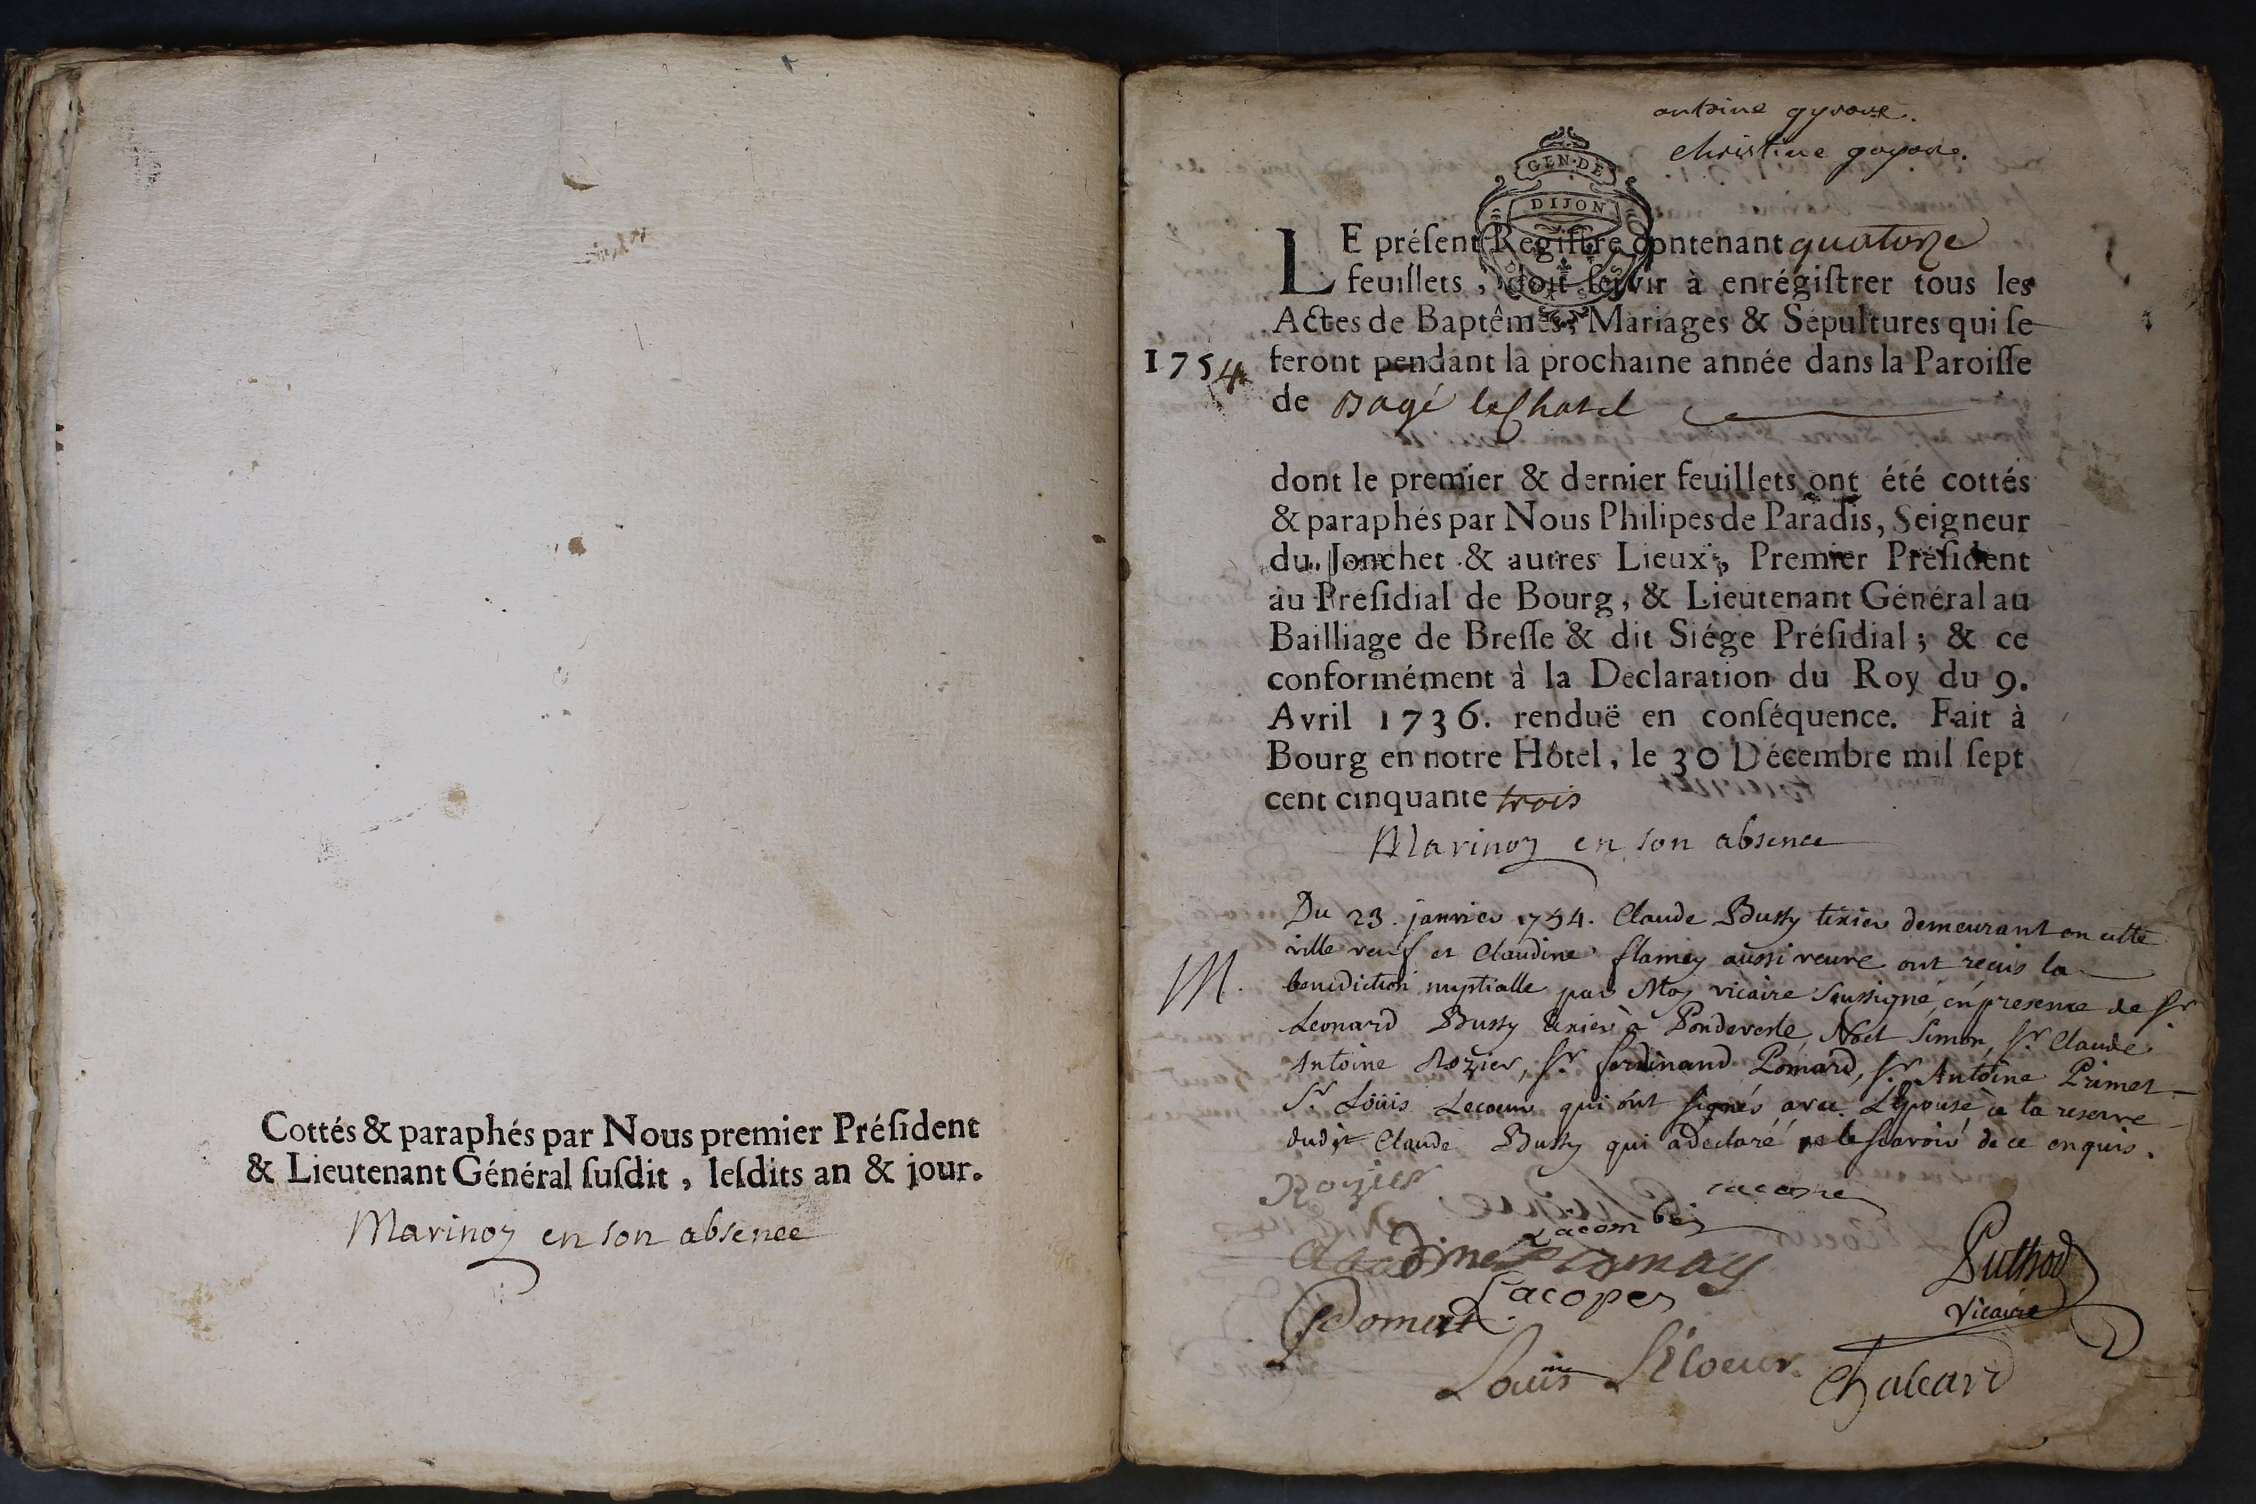 Cottés & paraphés par Nous premier Préſident
& Lieutenant Général ſuſdit, leſdits an & jour.
Marinoz en son absence
antoine
christine
GEN·DE
DIJON
LE préſent Regiſtre contenant quatorze
feuillets, doit ſervir à enrégiſtrer tous les
Actes de Baptêmes, Mariages & Sépultures qui ſe
1754
feront pendant la prochaine année dans la Paroiſſe
de Bagé leChatel
dont le premier & dernier feuillets ont été cottés
& paraphés par Nous Philipes de Paradis, Seigneur
du Jonchet & autres Lieux, Premier Préſident
au Préſidial de Bourg, & Lieutenant Général au
Bailliage de Breſſe & dit Siége Préſidial; & ce
conformément à la Declaration du Roy du 9.
Avril 1736. renduë en conſéquence. Fait à
Bourg en notre Hôtel, le 30 Décembre mil ſept
cent cinquante trois
Marinoz en son absence
Du 23. janvier 1754. Claude Bussy tixier demeurant en cette
ville veuf et Claudine flamey aussi veuve ont reçus la
M.
benediction nuptialle par Moy vicaire Soussigné, en presence de Sr
Léonard Bussy tixier à Pondevesle, Noël Simon, Sr. Claude
Antoine Rozier, Sr. ferdinand Pomard, Sr. Antoine Primet
Sr. Loüis Lecoeur qui ont signés avec L'epouse à la reserve
dudit Claude Bussy qui a declaré ne le scavoir de ce enquis.
Rozier
Lacombe
Claudine flamay
Lacoper
Puthod
vicaire
Louis Lecoeur
Chaleard